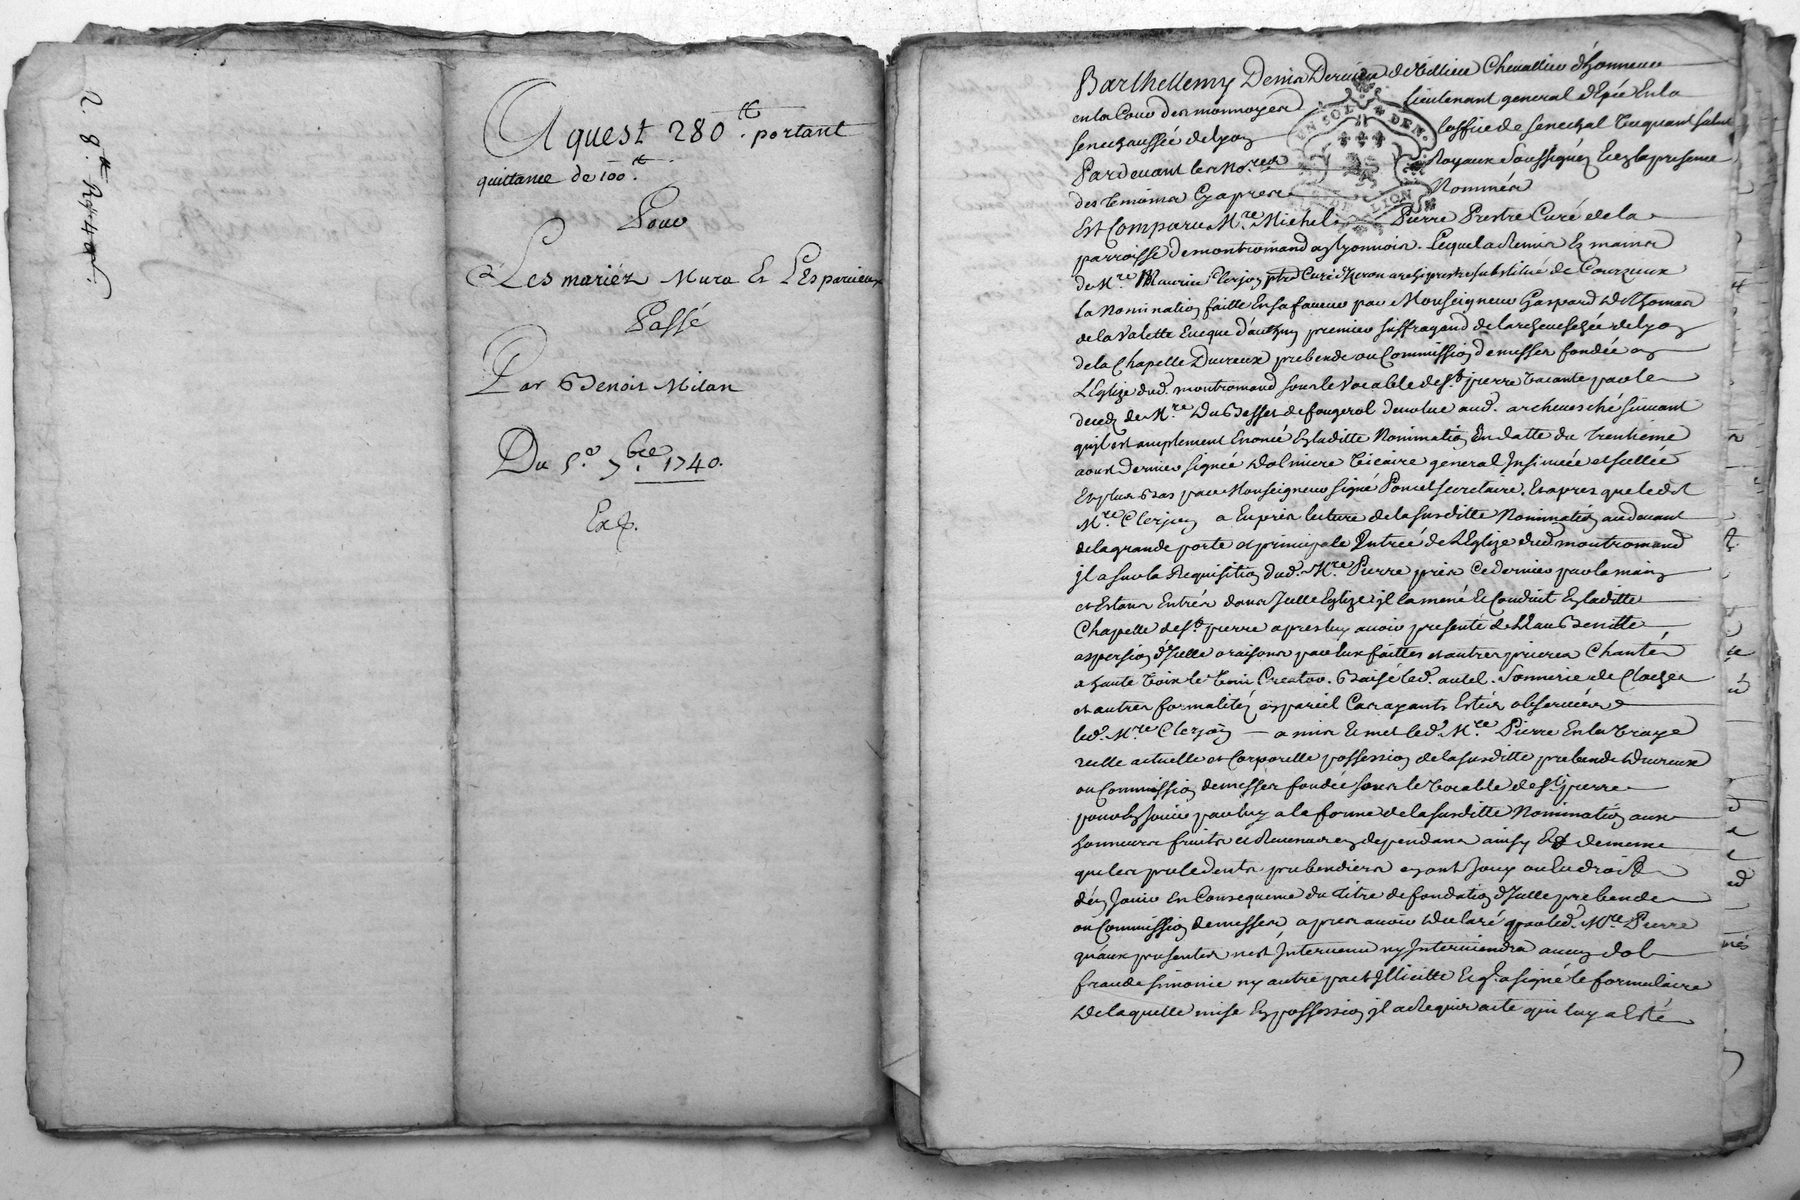 2. 8.tt
Aquest 280.tt portant
quittance de 100.tt
Pour
Les mariéz Mura Et L'Esparvieux
Passé
Par Benoit Milan
Du 5.e 7.bre 1740.
Exp.
Barthellemy Denis Dervieu de Villieu Chevallier d'honneur
en la Cour des monnoyes Lieutenant general d'Epée En la
senechaussée de Lyon loffice de senechal vacquant salut
Pardevant les No.res Royaux Soussignéz Et En la presence
des temoins Cy apres Nommés
Est Comparu M.re Michel Pierre Prestre Curé de la
parroisse de montromand en lyonnois. Lequel a Remis Es mains
de M.re Maurice Clerjon ptre Curé d'heron archiprestre substitué de Courzieux
la Nomination faitte En sa faveur par Monseigneur Gaspard de Thomas
de la Valette Eveque d'authun premier suffragand de larchevesché de Lyon
de la Chapelle Duvreux prebende ou Commission de messes fondée en
L'Eglize dud. montromand sous le vocable de s.t pierre vacante par le
decedz de M.re Du Besset de fougerol devolue aud. archevesché suivant
qu'il est amplement Enoncé En laditte Nomination En datte du trentieme
aoust dernier signée Dolmiere vicaire general Insinuée et sellée
Et plus Bas par Monseigneur signé Poncet secretaire. Et apres que ledit
M.re Clerjon a Eu pris lecture de la susditte Nomination au devant
de la grande porte et principale Entreé de L'Eglize dud. montromand
jl a sur la Requisition dud. M.re Pierre pris Ce dernier par la main
et Estans Entrés dans Jcelle Eglize jl la mené Et Conduit En laditte
Chapelle de s.t pierre apres luy avoir presenté de L'Eau Benitte
aspersion d'Jcelle oraisons par luy faittes et autres prieres Chanté
a haute voix le veni Creator. Baisé led. autel. Sonnerie de Cloche
et autres formalités en pareil Cas ayants Estées observées
led. M.re Clerjon a mis Et met led. M.re Pierre En la vraye
reelle actuelle et Corporelle possession de la susditte prebende Duvreux
ou Commission de messes fondée sous le vocable de s.t pierre
pour En Jouir par luy a la forme de la susditte Nomination aux
honneurs fruits et Revenus en dependans ainsy Et de meme
que les precedents prebendiers ayant Jouy ou Eu droit
d'en Jouir En Consequence du titre de fondation d'Jcelle prebende
ou Commission de messes apres avoir Declaré par led. M.re Pierre
qu'aux presentes n'est Intervenu ny Interviendra aucun dol
fraude simonie ny autre pact Jllicitte Et qu'il a signé le formulaire
De laquelle mise En possession jl a Requis acte qui luy a Esté